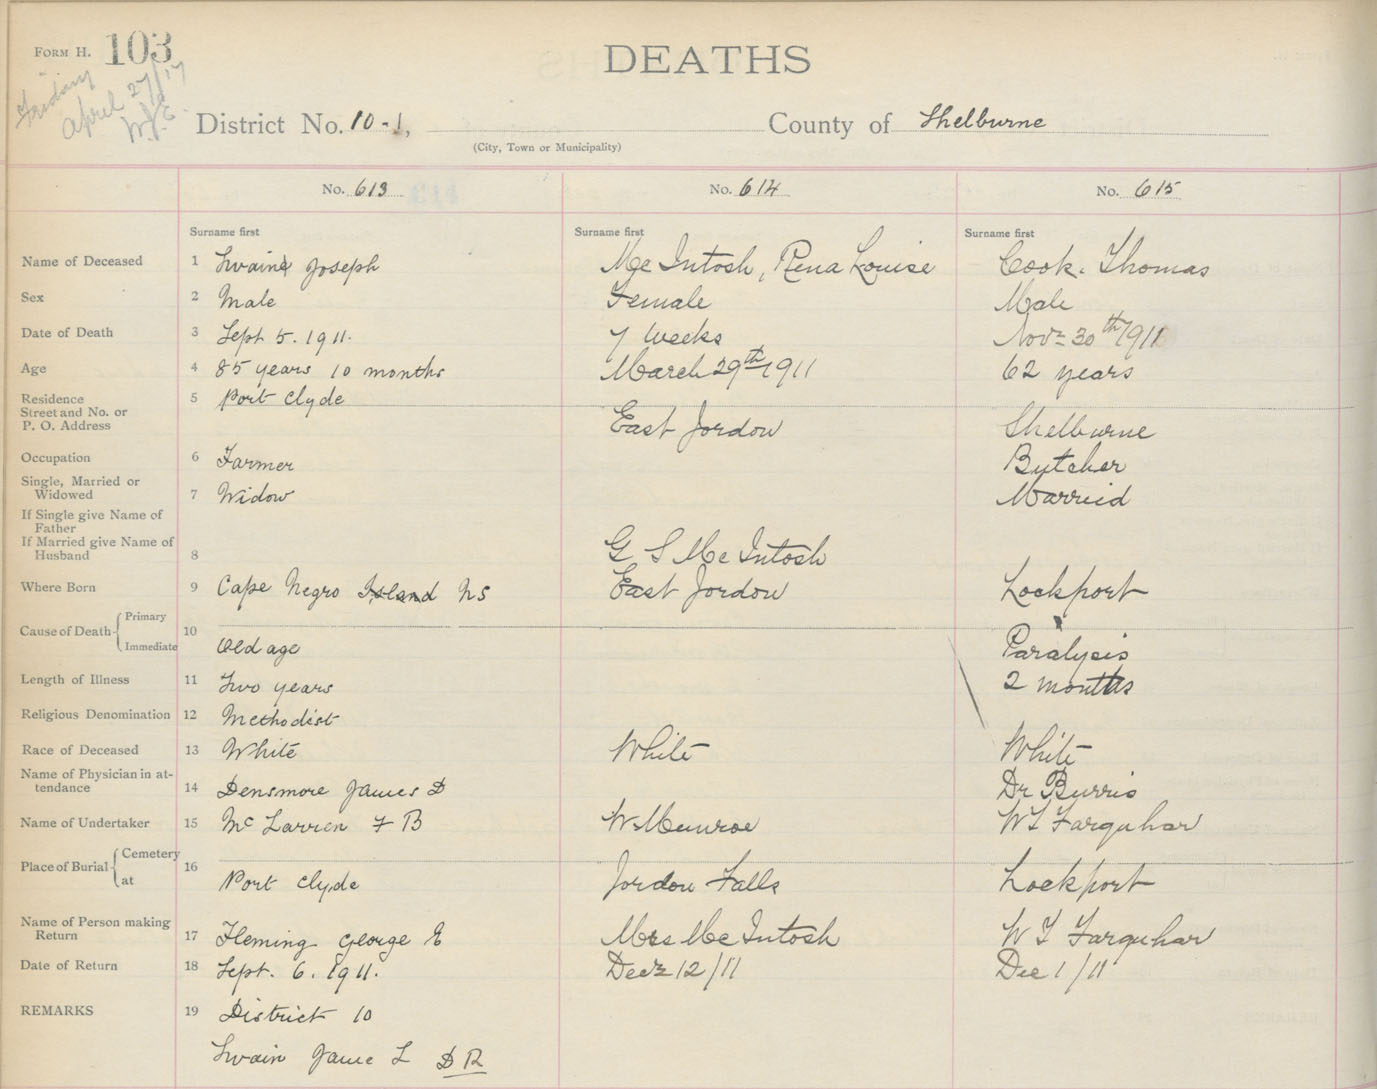 FORM H. 103
Friday
April 27/17
District No. 10-1,
(City, Town or Municipality)
DEATHS
County of Shelburne
No. 613 No. 614 No. 615
Surname first Surname first Surname first
Name of Deceased 1 Swain Joseph Mc Intosh, Rena Louise Cook. Thomas
Sex 2 Male Female Male
Date of Death 3 Sept 5. 1911. 7 weeks Nov 30th 1911
Age 4 85 years 10 months March 29th 1911 62 years
Residence
Street and No. or
P. O. Address 5 Port Clyde East Jordon Shelburne
Occupation 6 Farmer Butcher
Single, Married or
Widowed 7 Widow Marreid
If Single give Name of
Father
If Married give Name of
Husband 8 G S Mc Intosh
Where Born 9 Cape Negro Island NS East Jordon Lockport
Cause of Death Primary
Immediate 10 Old age Paralysis
Length of Illness 11 Two years 2 months
Religious Denomination 12 Methodist
Race of Deceased 13 White White White
Name of Physician in at-
tendance 14 Densmore James D Dr Burris
Name of Undertaker 15 Mc Larren F B W. Munroe W T Farquhar
Place of Burial Cemetery
at 16 Port Clyde Jordon Falls Lockport
Name of Person making
Return 17 Fleming George E Mrs Mc Intosh W T Farquhar
Date of Return 18 Sept. 6. 1911. Dec 12/11 Dec 1/11
REMARKS 19 District 10
Swain Jame L D R